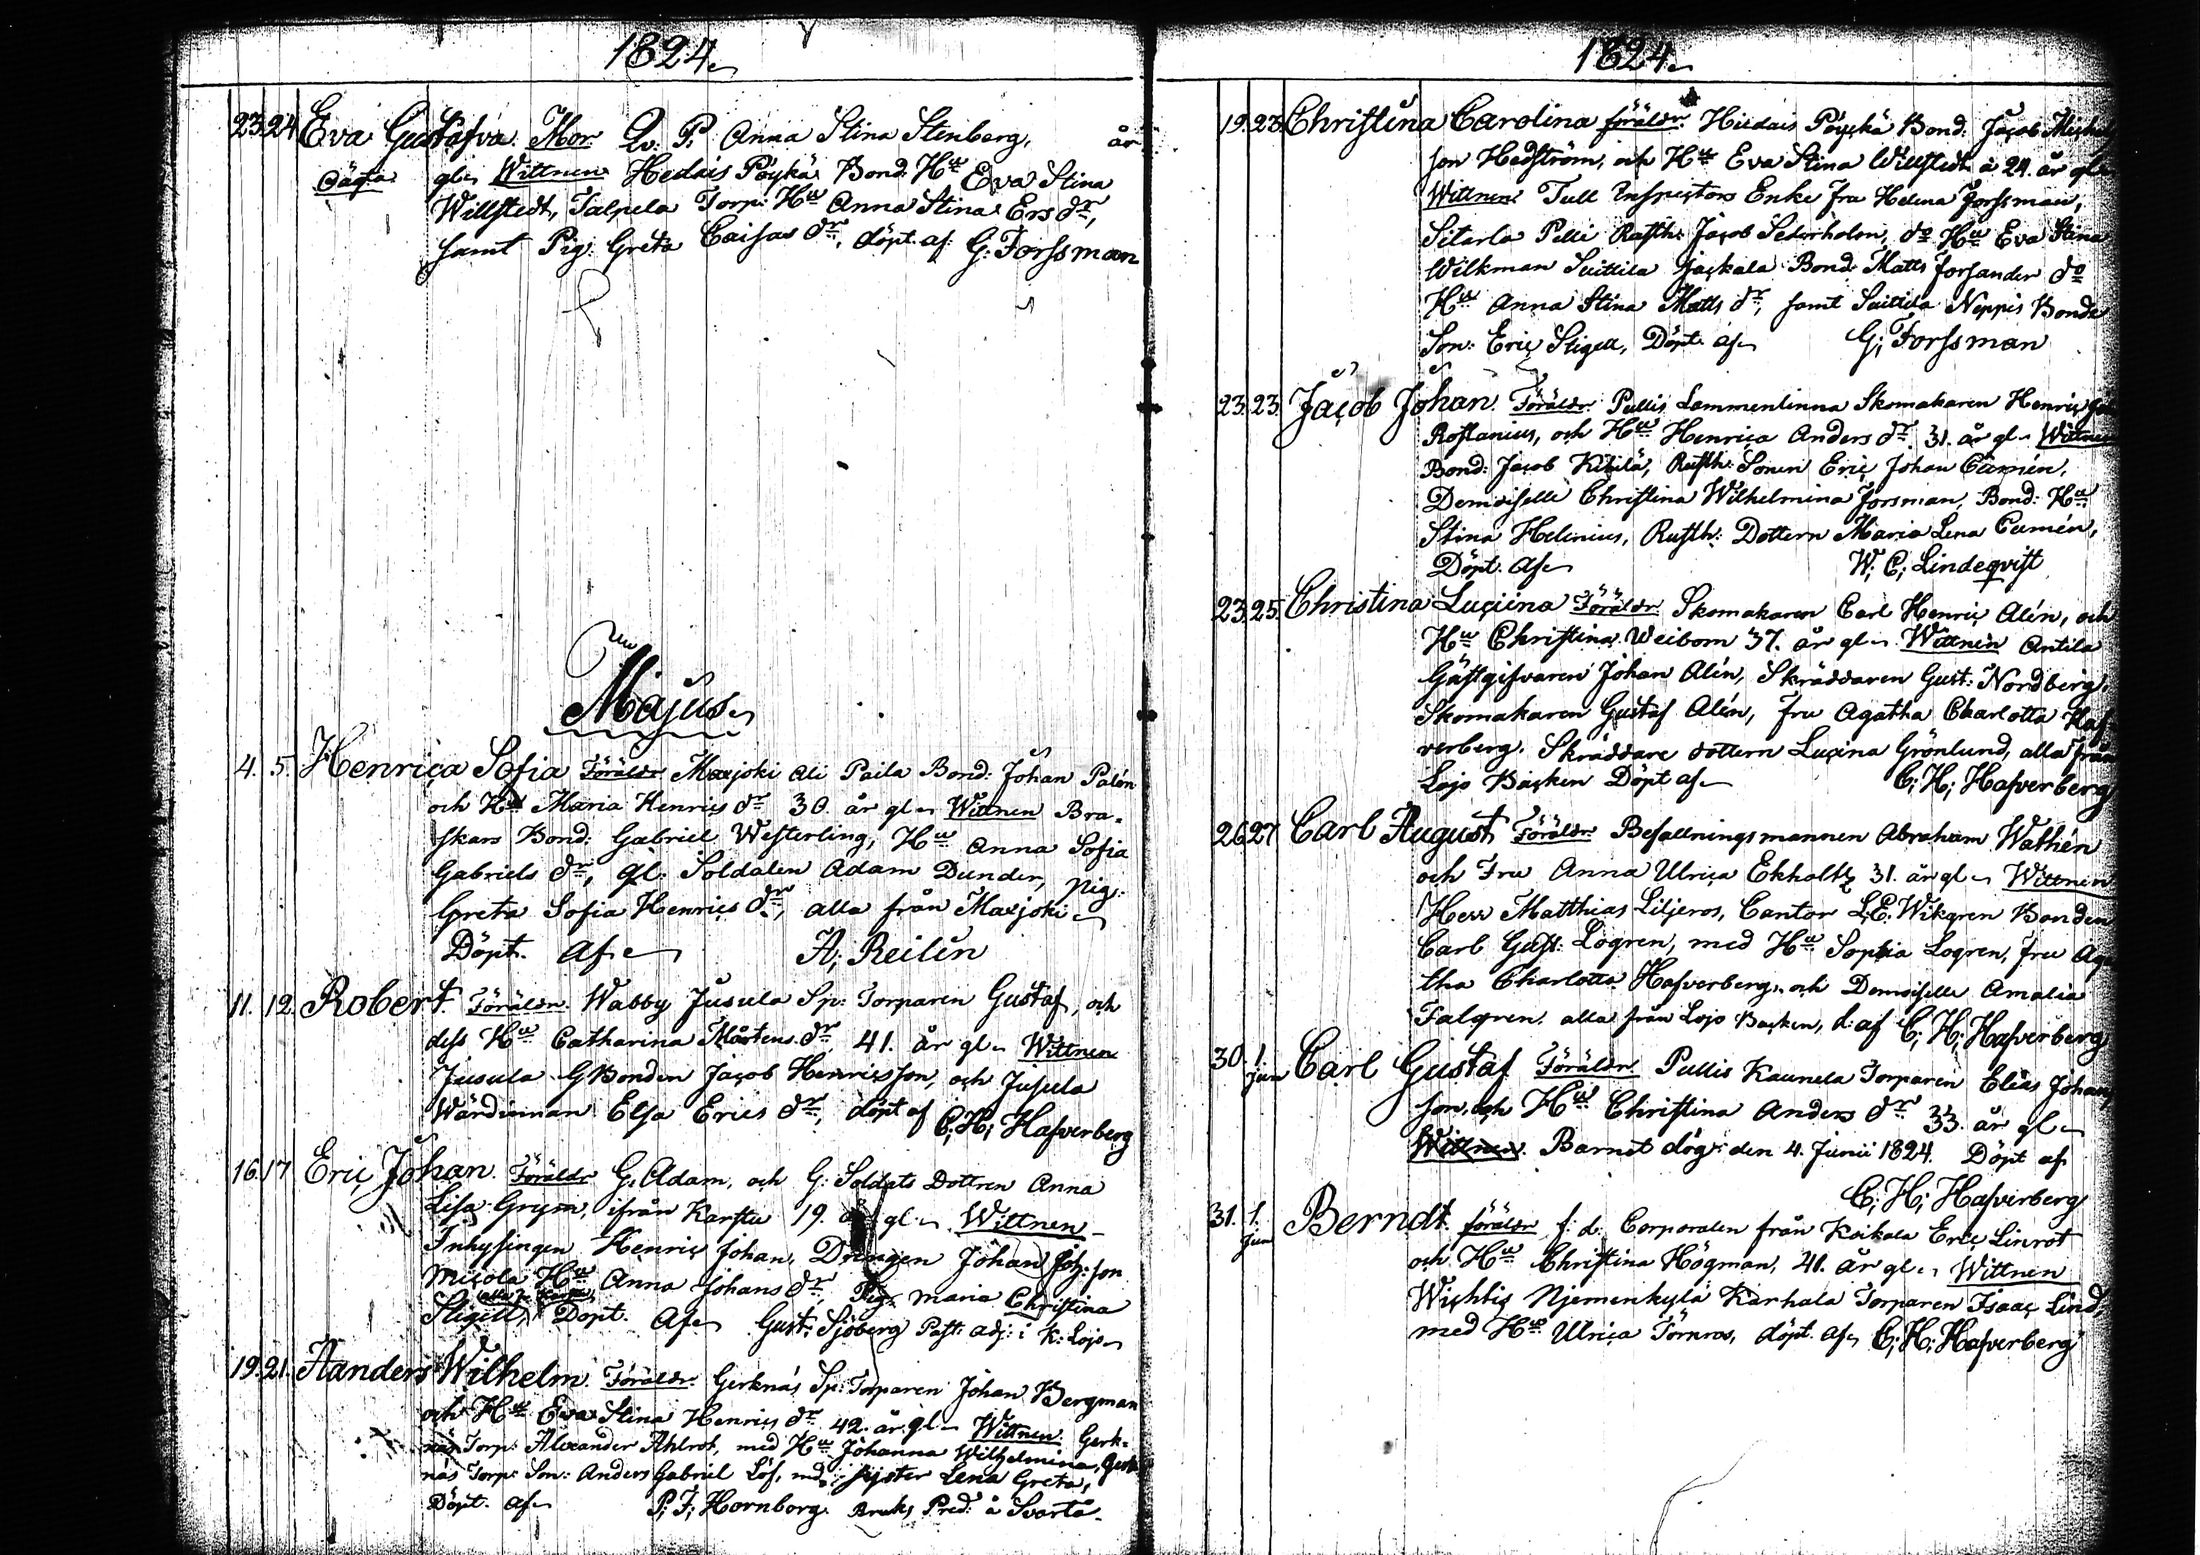 1824.
23. 24. Eva Gustafva. Mor. Qv. P. Anna Stina Stenberg, år
Oägta gl. Wittnen Hiidais Pöykä Bond. Hu Eva Stina
Willstedt, Talpela Torp: Hu Anna Stina Ers dr,
samt Pig: Greta Caisas dr, döpt. af. G: Forssman
Majus.
4. 5. Henrica Sofia Föräldr. Maxjoki Ali Paila Bond: Johan Palén
och Hu Maria Henrics dr 30. år gl. Wittnen Bra-
skars Bond: Gabriel Westerling, Hu Anna Sofia
Gabriels dr, gl: Soldaten Adam Dunder, pig:
Greta Sofia Henrics dr, alla från Maxjoki
Döpt. af. A; Reilin
11. 12. Robert. Föräldr. Wabby Jusula Sp: Torparen Gustaf, och
dess Hu Catharina Mårtens dr 41. år gl. Wittnen
Jusula GBonden Jacob Henricsson, och Jusula
Wärdinnan Elsa Erics dr, döpt af C; H; Hafverberg
16. 17. Eric Johan. Föräldr. G: Adam, och G: Soldats Dottren Anna
Lisa Grym, ifrån Karstu 19. år gl. Wittnen
Inhysingen Henric Johan, Drängen Johan Joh: son
Micola Hu Anna Johans dr, Pig: Maria Christina
Stigell, Döpt. af. Gust; Sjöberg Past: adj: i K: Lojo
19. 21. Aanders Wilhelm. Föräldr. Gerknäs Sp: Torparen Johan Bergman
och Hu Eva Stina Henrics dr 42. år gl. Wittnen Gerk-
näs Torp: Alexander Ahlrot, med Hu Johanna Wilhelmina, Gerk
näs Torp: Son: Anders Gabriel Löf, med syster Lena Greta,
Döpt. af. P; F; Hornborg. Bruks Pred: å Svartå
1824.
19. 23. Christina Carolina föräldr. Hiidais Pöyckä Bond: Jacob Michels
son Hedström, och Hu Eva Stina Willstedt à 24. år gl.
Wittnen Tull Inspectors Enke fru Helena Forssman,
Sitarla Pelli Rusth: Jacob Sederholm, do Hu Eva Stina
Wilkman Suittila Jackala Bond: Matts Forsander do
Hu Anna Stina Matts dr, samt Suitila Neppis Bonde
Son: Eric Stigell, Döpt. af G; Forssman
23. 23. Jacob Johan. Föräldr. Pullis Lammenlinna Skomakaren Henric
Rostanius, och Hu Henrica Anders dr 31. år gl. Wittnen
Bond: Jacob Kitilä, Rusth: Sonen Eric Johan Camén,
Demoiselle Christina Wilhelmina Forsman, Bond: Hu
Stina Helenius, Rusth: Dottern Maria Lena Camén,
Döpt. af W; C; Lindeqvist
23. 25. Christina Lucina Föräldr. Skomakaren Carl Henric Alén, och
Hu Christina Weibom 37. år gl. Wittnen Antila
Gästgifvaren Johan Alén, Skräddaren Gust: Nordberg,
Skomakaren Gustaf Alén, Fru Agatha Charlotta Haf-
verberg. Skräddare dottern Lucina Grönlund, alla från
Lojo Backen Döpt af C; H; Hafverberg
26 27 Carl August Föräldr. Befallningsmannen Abraham Wathén
och Fru Anna Ulrica Ekholtz 31. år gl. Wittnen
Herr Matthias Liljeros, Cantor L.E. Wikgren Bonden
Carl Gust: Logren, med Hu Sophia Logren, Fru Aga
tha Charlotta Hafverberg, och Demoiselle Amalia
Falgren. alla från Lojo Backen, d: af C; H; Hafverberg
30. 1. Jun Carl Gustaf Föräldr. Pullis Kaunela Torparen Elias Johans
son, och Hu Christina Anders dr 33. år gl.
Wittnen. Barnet dög: den 4. Junii 1824. Döpt af
C; H; Hafverberg
31. 1. Jun Berndt. föräldr. f: d: Corporalen från Koikala Eric Linrot
och Hu Christina Högman, 41. år gl. Wittnen
Wichtis Njemenkylä Karhala Torparen Isaac Lind,
med Hu Ulrica Törnros, döpt. af C; H; Hafverberg